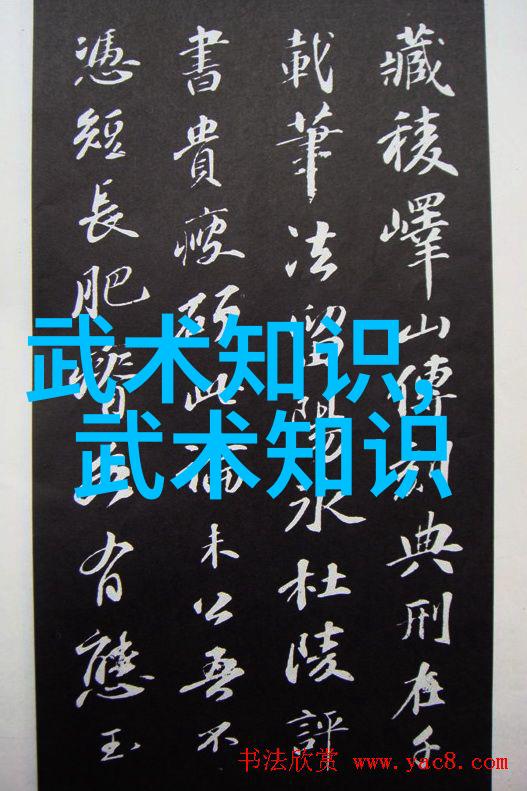 藏稜嶧山傳刻典刑在千
載筆法留陽氷杜陵評
書貴瘦硬此論未公吾不
憑短長肥瘠各有態玉
武术知识,
武术知识
书法欣赏 www.yac8.com